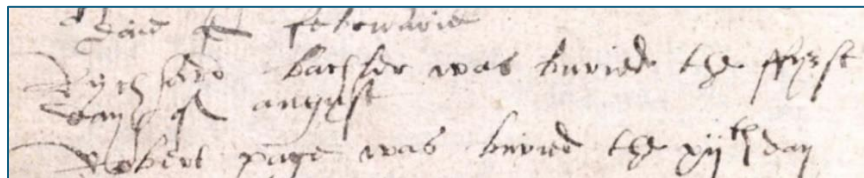 Daie of februarie
Rychard bachler was buried the ffyrst
day of august
Robert page was buried the xijth day